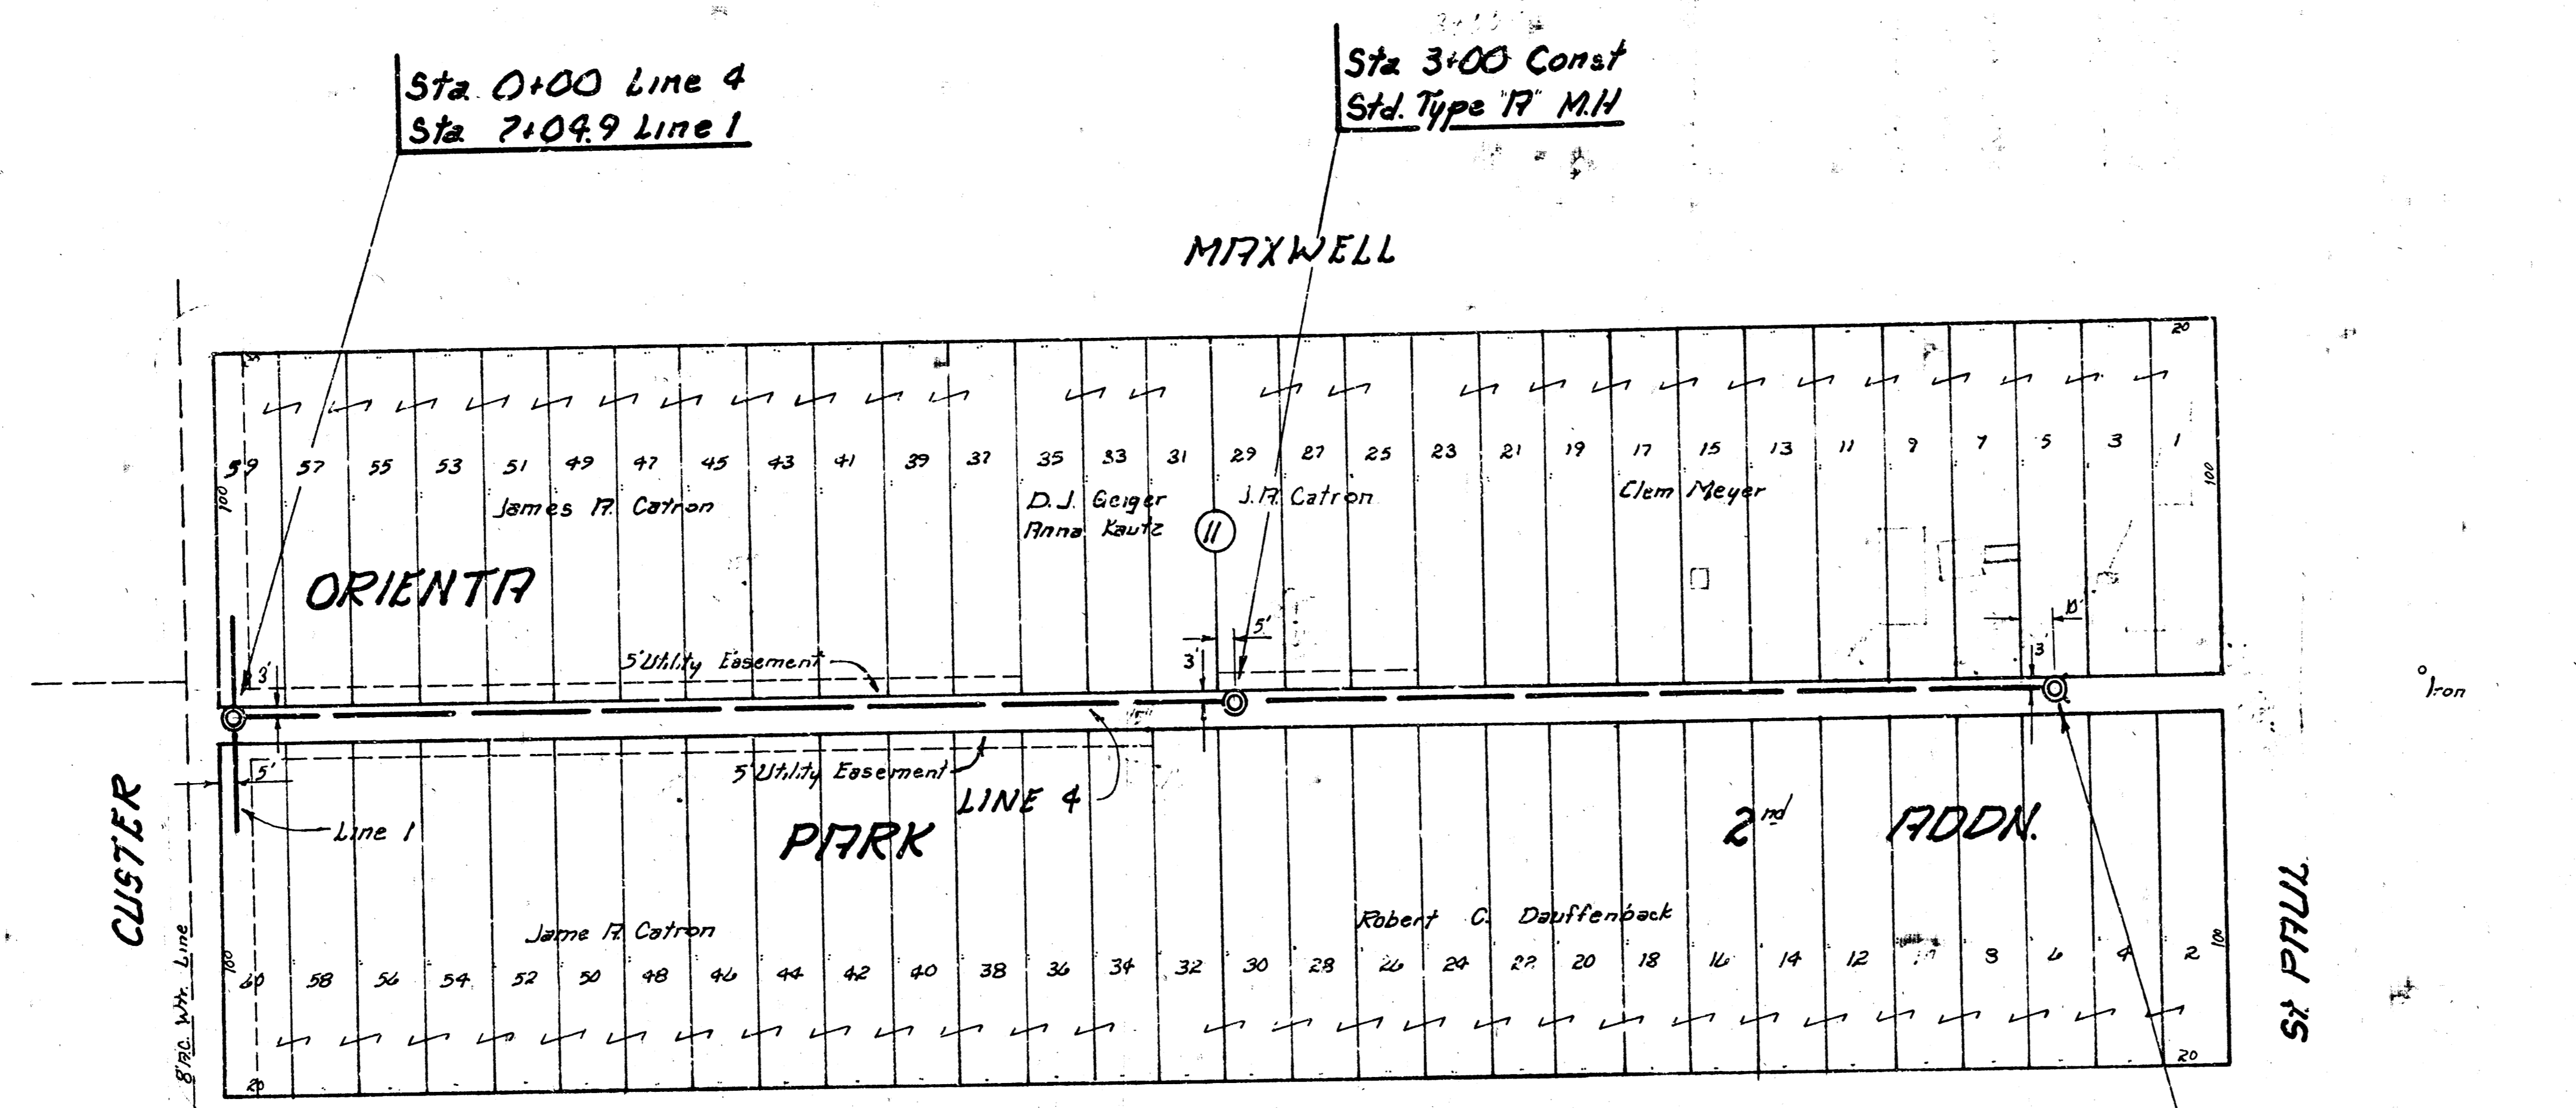 Sta 0+00 Line 4
Sta 7+04.9 Line 1
Sta 3+00 Const
Std. Type "A" M.H
MAXWELL
20
59 57 55 53 51 49 47 45 43 41 39 37 35 33 31 29 27 25 23 21 19 17 15 13 11 9 7 5 3 1
100
James A. Catron
D. J. Geiger
Anna Kautz
J. A. Catron
Clem Meyer
100
11
ORIENTA
10'
5'
3'
5' Utility Easement
3'
3'
Iron
5'
5' Utility Easement
LINE 4
Line 1
PARK
2nd ADDN.
CUSTER
St. PAUL
8" A.C. Wtr. Line
Jame A. Catron
Robert C. Dauffenback
100
60 58 56 54 52 50 48 46 44 42 40 38 36 34 32 30 28 26 24 22 20 18 16 14 12 8 6 4 2
100
20
20